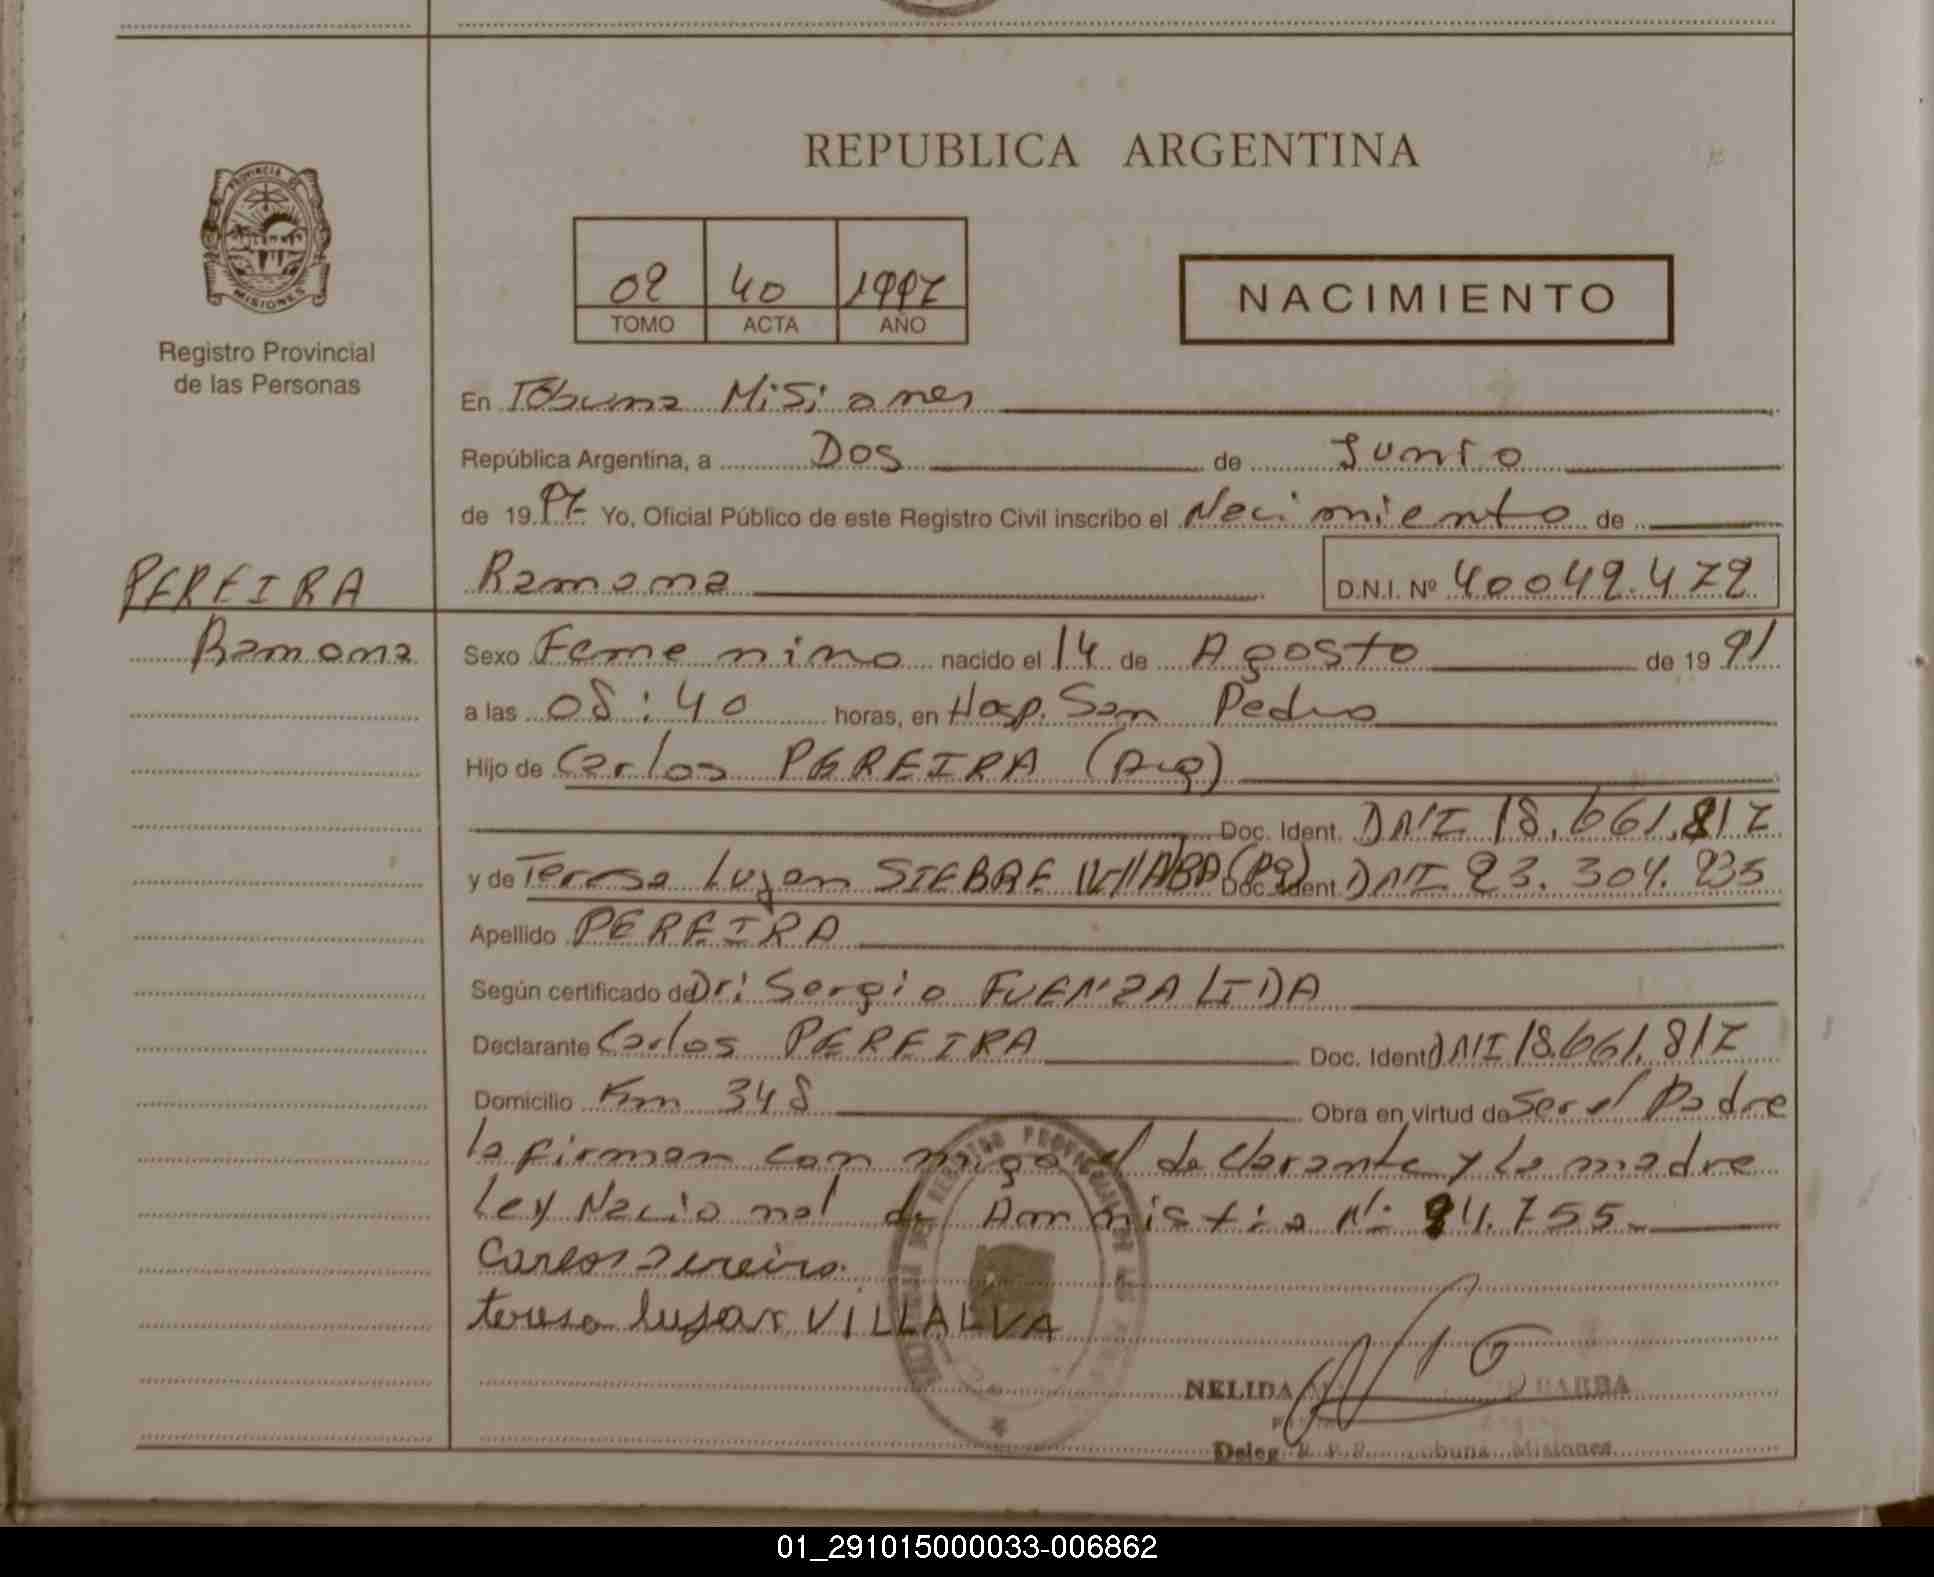 REPUBLICA ARGENTINA
PROVINCIA DE
MISIONES
Registro Provincial
de las Personas
02 40 1997
TOMO ACTA AÑO
NACIMIENTO
En Tobuna Misiones
República Argentina, a Dos de Junio
de 1997 Yo, Oficial Público de este Registro Civil inscribo el Nacimiento de
PEREIRA Ramona D.N.I. Nº 40042.472
Ramona Sexo Femenino nacido el 14 de Agosto de 1991
a las 08:40 horas, en Hosp. San Pedro
Hijo de Carlos PEREIRA (Arg)
Doc. Ident. DNI 18.661.817
y de Teresa Lujan SIEBRE (Arg) Doc. Ident. DNI 23.304.235
Apellido PEREIRA
Según certificado de Dr: Sergio FUENZALIDA
Declarante Carlos PEREIRA Doc. Ident. DNI 18.661.817
Domicilio Km 348 Obra en virtud de Ser el Padre
la firman con migo el declarante y la madre
Ley Nacional de Amnistia Nº 24.755
Carlos Pereira
teresa lujan VILLALVA
NELIDA BARBA
Deleg. R.P.P. Tobuna Misiones
01_291015000033-006862